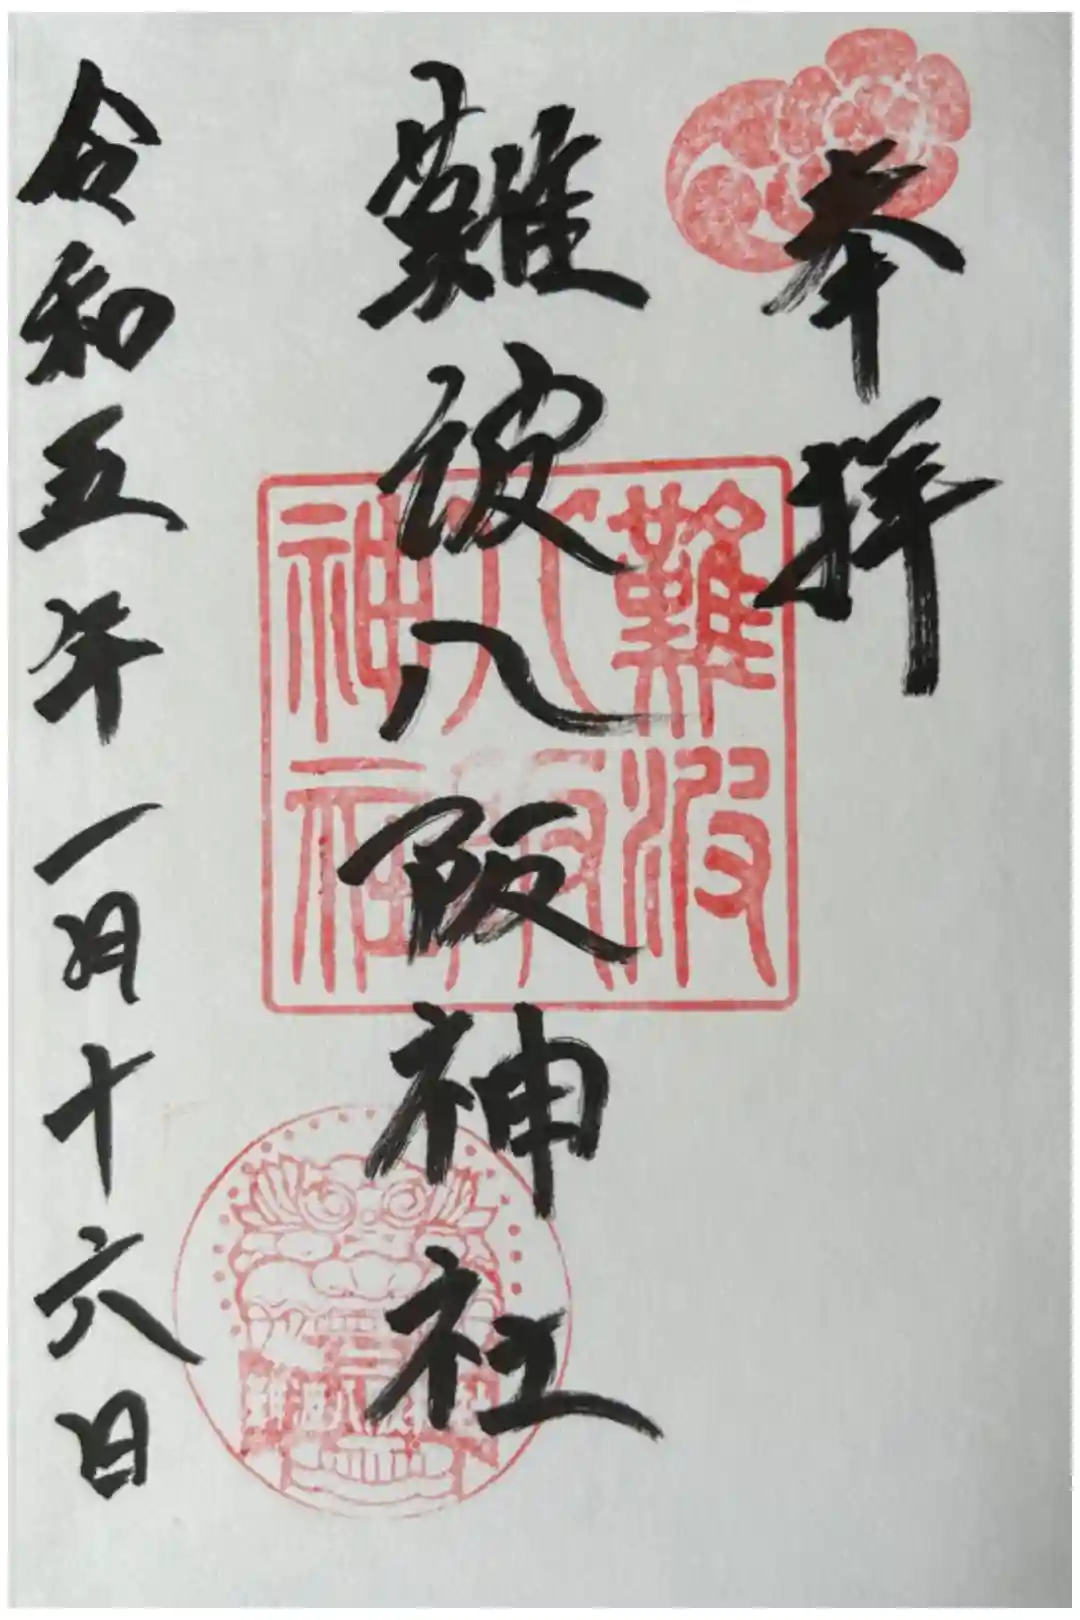 奉拝
難波八阪神社
難波
八阪
神社
難波八阪神社
令和五年一月十六日